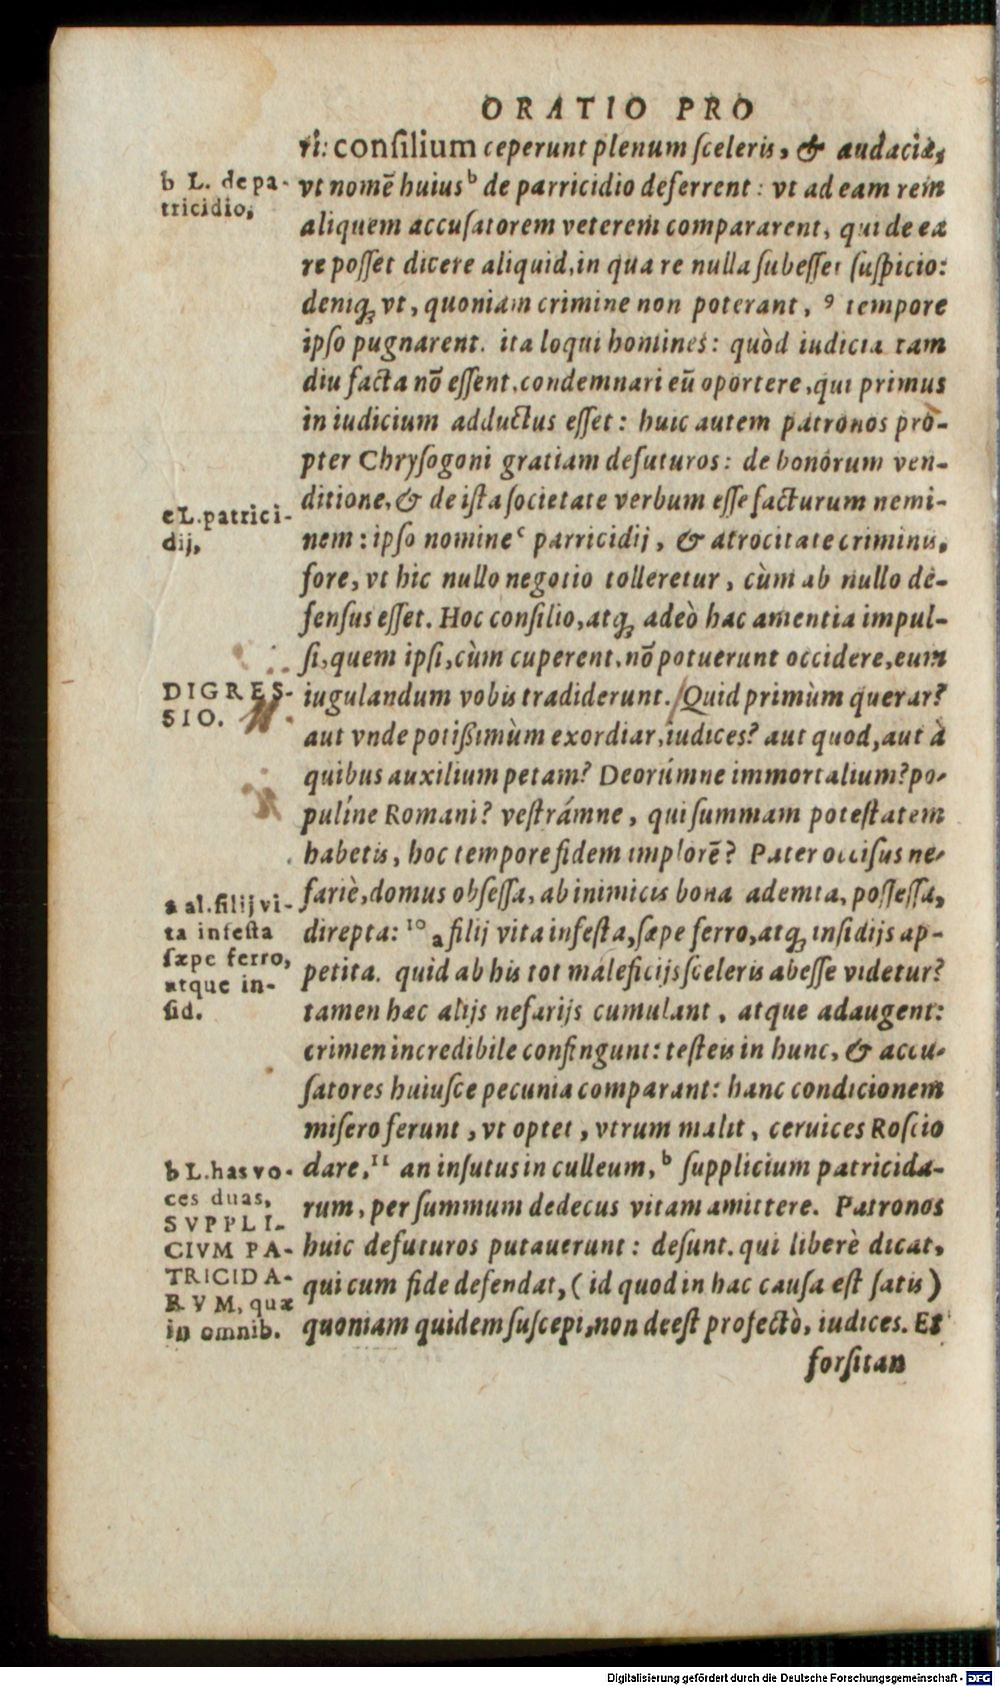 ORATIO PRO
ri: consilium ceperunt plenum sceleris, & audaciæ,
b L. de pa-
tricidio,
vt nomē huius b de parricidio deferrent: vt ad eam rem
aliquem accusatorem veterem compararent, qui de ea
re posset dicere aliquid, in qua re nulla subesset suspicio:
deniq; vt, quoniam crimine non poterant, 9 tempore
ipso pugnarent. ita loqui homines: quòd iudicia tam
diu facta nō essent, condemnari eū oportere, qui primus
in iudicium adductus esset: huic autem patronos pro-
pter Chrysogoni gratiam defuturos: de bonorum ven-
ditione, & de ista societate verbum esse facturum nemi-
c L. patrici-
dij,
nem: ipso nomine c parricidij, & atrocitate criminis,
fore, vt hic nullo negotio tolleretur, cùm ab nullo de-
fensus esset. Hoc consilio, atq; adeò hac amentia impul-
si, quem ipsi, cùm cuperent, nō potuerunt occidere, eum
DIGRES-
SIO.
iugulandum vobis tradiderunt. Quid primùm querar?
aut vnde potißimùm exordiar, iudices? aut quod, aut à
quibus auxilium petam? Deorúmne immortalium? po-
pulíne Romani? vestrámne, qui summam potestatem
habetis, hoc tempore fidem implorē? Pater occisus ne-
fariè, domus obsessa, ab inimicis bona ademta, possessa,
a al. filij vi-
ta infesta
sæpe ferro,
atque in-
sid.
direpta: 10 a filij vita infesta, sæpe ferro, atq; insidijs ap-
petita. quid ab his tot maleficijs sceleris abesse videtur?
tamen hæc alijs nefarijs cumulant, atque adaugent:
crimen incredibile confingunt: testeis in hunc, & accu-
satores huiusce pecunia comparant: hanc condicionem
misero ferunt, vt optet, vtrum malit, ceruices Roscio
b L. has vo-
ces duas,
SVPPLI-
CIVM PA-
TRICIDA-
RVM, quæ
in omnib.
dare, 11 an insutus in culleum, b supplicium patricida-
rum, per summum dedecus vitam amittere. Patronos
huic defuturos putauerunt: desunt. qui liberè dicat,
qui cum fide defendat, (id quod in hac causa est satis)
quoniam quidem suscepi, non deest profectò, iudices. Et
forsitan
Digitalisierung gefördert durch die Deutsche Forschungsgemeinschaft - DFG